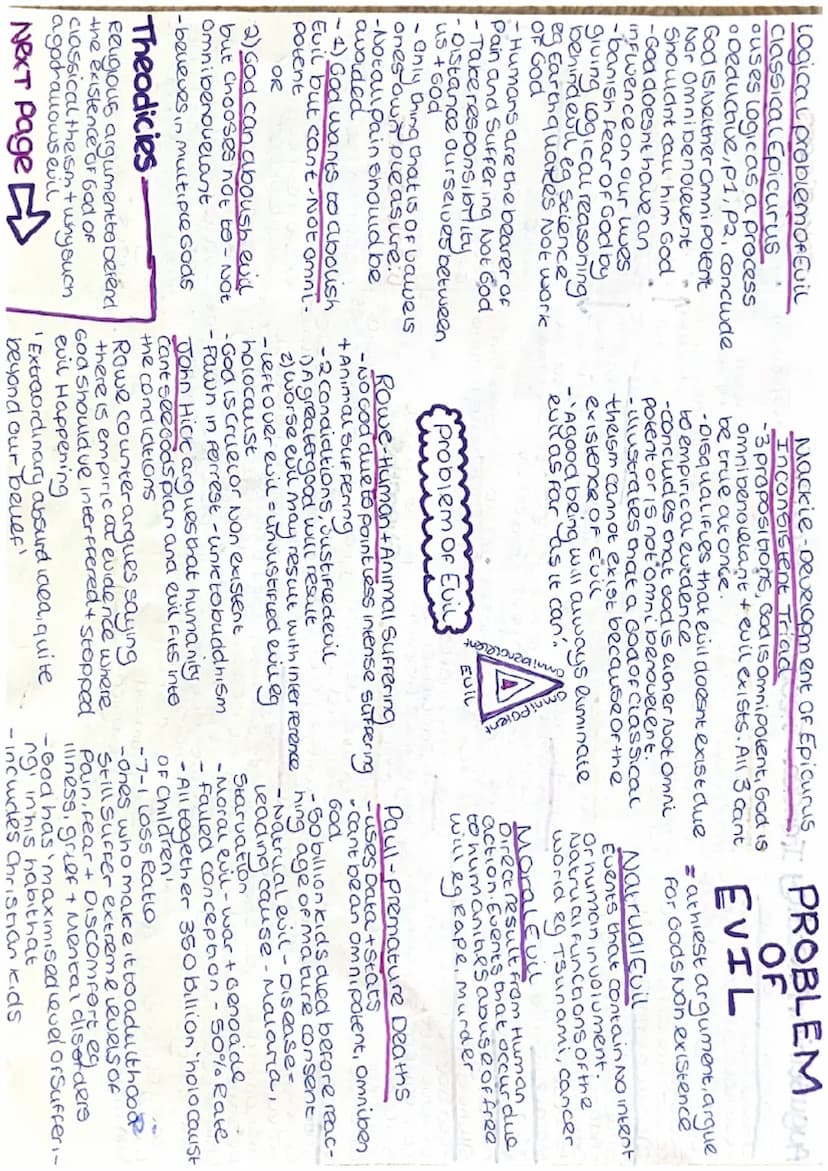 logical problem OF Evil
Classical Epicurus
o uses logic as a process
o Deductive, P1, P2, conclude
God is Neither Omnipotent
Nor Omnibenevolent
Shouldnt call him God
- God doesnt have an
influence on our lives
- banish fear of God by
giving logical reasoning
behind evil eg Science
eg Earthquakes Not work
of God
- Humans are the bearer of
Pain and suffering Not God
- Take responsibility
- Distance ourselves between
us + God
- Only thing that is of value is
ones own pleasure!
- Not all pain should be
avoided
- 1) God wants to abolish
Evil but cant. Not omni-
potent
or
2) God can abolish evil
but chooses not to - Not
Omnibenevelant
- believes in multiple Gods
Theodicies
Religious argument to defend
the existence of God of
classical theism + why such
a god allows evil
NEXT Page
Mackie - Development of Epicurus
Inconsistent Triad
- 3 propositions, God is omnipotent, God is
omnibenevolant + evil exists. All 3 cant
be true at once.
- Disqualifies that evil doesnt exist due
to empirical evidence
- Concludes that God is either Not omni
potent or is not omnibenevelent.
- Illustrates that a God of Classical
theism cannot exist because of the
existence of Evil
- 'A good being will always eliminate
evil as far as it can'.
Problem of Evil
omnibenevelent
omnipotent
EVIL
Rowe - Human + Animal Suffering
- No God due to pointless intense suffering
+ Animal suffering
- 2 condidtions justified evil
1) A greater good will result
2) Worse evil may result with interference
- left over evil = unjustified evil eg
holocaust
- God is Cruel or Non existent
- Fawn in forrest - link to buddhism
John Hick argues that humanity
cant see Gods plan and evil fits into
the condictions
Rowe counter argues saying
there is empirical evidence where
God should've interffered + stopped
evil Happening
'Extraordinary absurd idea, quite
beyond our belief'
PROBLEM
OF
EVIL
= athiest argument, argue
for Gods Non existence
Natrual Evil
Events that contain No intent
or human involvment.
Natrual functions of the
world eg Tsunami, cancer
Moral Evil
Direct result from Human
action. Events that occur due
to humanities abuse of free
will eg Rape, murder
Paul - Premature Deaths
- Uses Data + stats
- cant be an omnipotent, omniben
God
- 50 billion kids died before reac-
hing age of mature consent
- Natrual evil - Disease -
leading cause - Malara,
Starvation
- Moral evil - war + Genoaide
- Failed conception - 50% Rate
- Alltogether 350 billion 'holocaust
of children'
- 7-1 Loss Ratio
- Ones who make it to adulthood
still suffer extreme levels of
pain, fear + Discomfort eg
illness, grief + Mental disorders
- God has 'maximised level of sufferi-
ng' in his habitat
- includes Christian kids